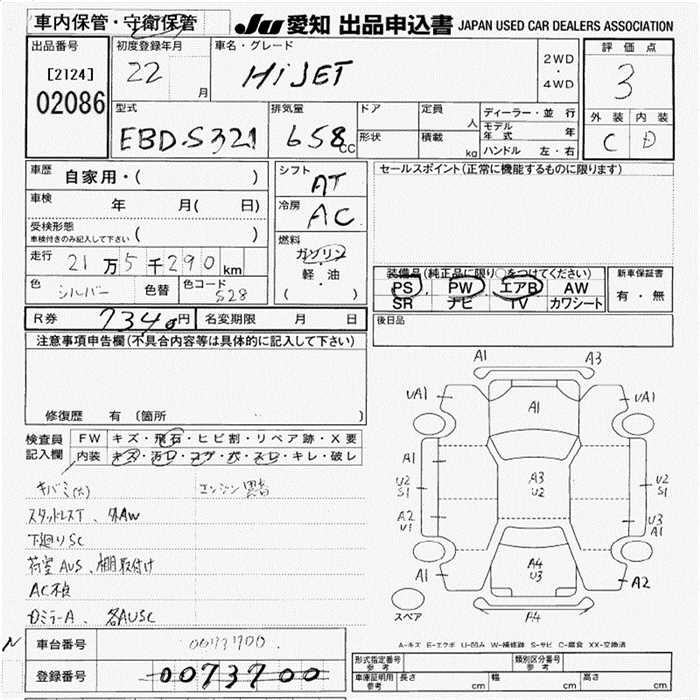 車内保管・守衛保管
JU 愛知 出品申込書 JAPAN USED CAR DEALERS ASSOCIATION
出品番号 [2124] 02086
初度登録年月 22 月
車名・グレード HiJET
2WD ・ 4WD
評価点 3
外装 内装
C D
型式 EBD-S321
排気量 658 cc
ドア 定員 人
形状 積載 kg
ディーラー・並行
モデル年式 年
ハンドル 左・右
車歴 自家用・( )
シフト AT
セールスポイント(正常に機能するものに限ります)
車検 年 月( 日)
冷房 AC
受検形態 ( )
車検付きのみ記入して下さい
燃料 ガソリン・軽・油 ( )
走行 21万5千290km
色 シルバー 色替 色コード S28
装備品(純正品に限り○をつけてください)
PS PW エアB AW
SR ナビ TV カワシート
新車保証書 有・無
R券 7340円 名変期限 月 日
後日品
注意事項申告欄(不具合内容等は具体的に記入して下さい)
修復歴 有(箇所
検査員記入欄
FW キズ・飛石・ヒビ割・リペア跡・X要
内装 キズ・汚レ・コゲ・穴・スレ・キレ・破レ
キバミ(大) エンジン異音
スタッドレスT、外AW
下廻りSC
荷室AUS、棚取付け
AC不良
DミラーA、各AUSC
A1 A3
UA1 UA1
A1
A1
U2 S1
A3 U2
U2 S1
A2 U1
U3 A1
A1
A4 U3
A2
スペア
P4
A-キズ E-エクボ U-凹み W-補修跡 S-サビ C-腐食 XX-交換済
N 車台番号 0073700
登録番号 0073700
形式指定番号 参考
類別区分番号 参考
車庫証明用 参考 長さ cm 幅 cm 高さ cm